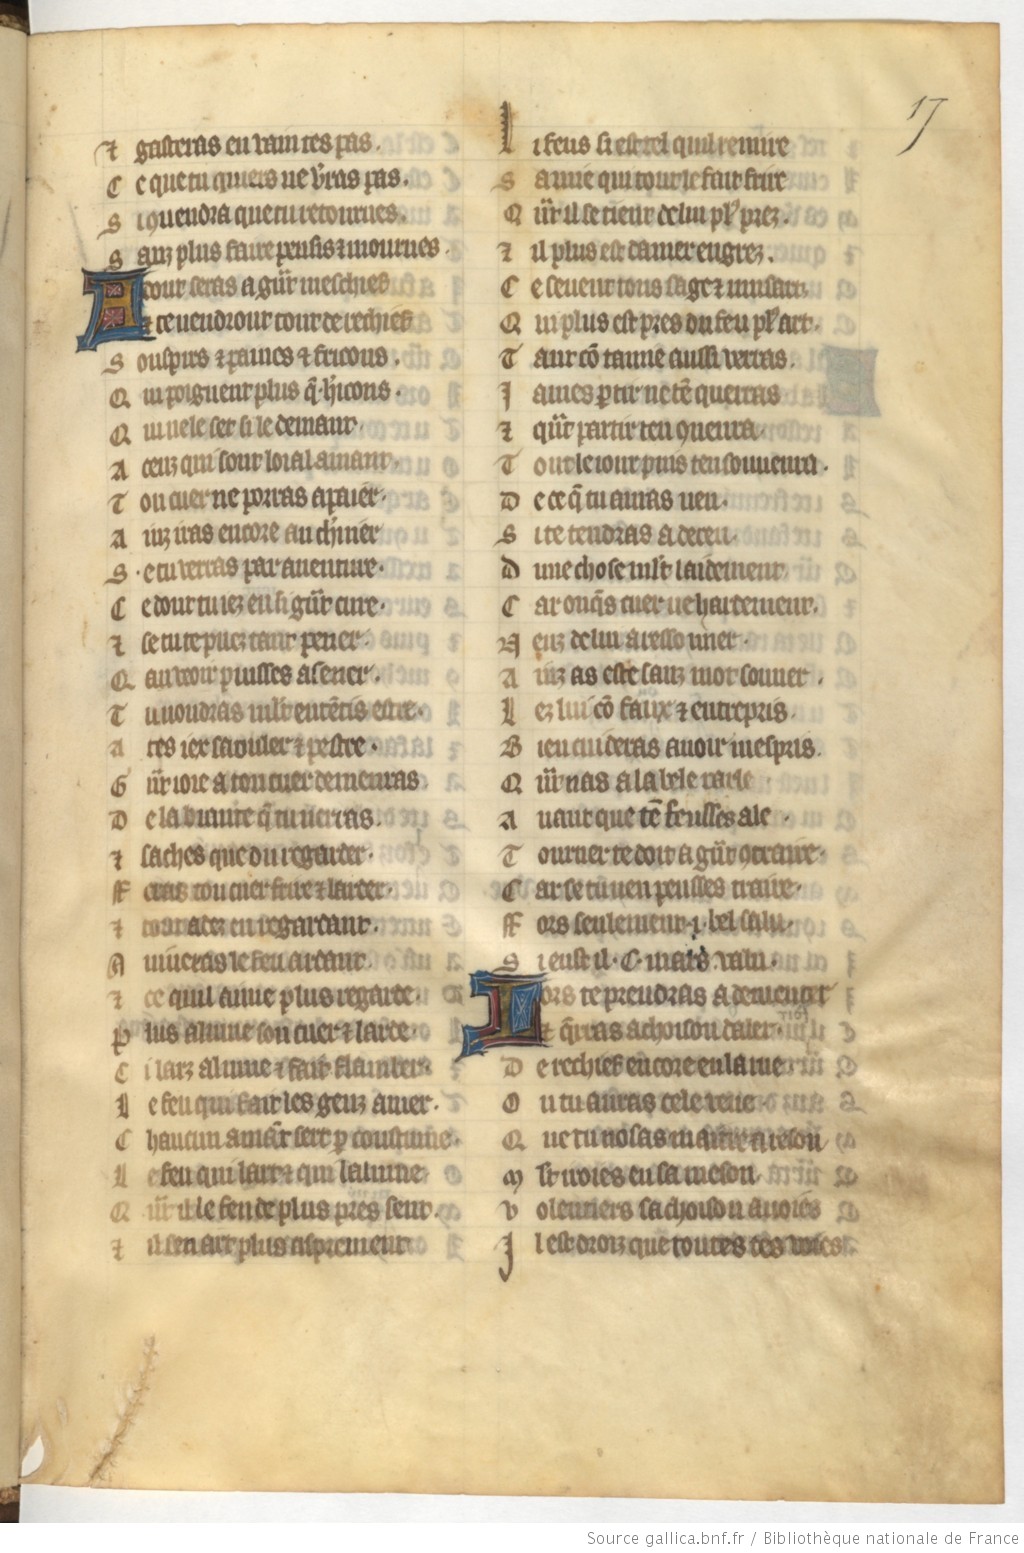 17
⁊ gasteras en vain tes pas.
C e que tu quiers ne v̾ras pas.
S i ꝯuendra que tu retournes.
S anz plus faire pensis ⁊ mournes.
A tour seras a gñt meschief
⁊ te uendront tout de rechief
S ouspirs ⁊ paines ⁊ fricons.
Q ui poignent plus q̃ hicons.
Q ui ne le set si le demant.
A ceuz qui sont loial amant.
T on cuer ne porras apaier.
A inz iras encore au chiner
S e tu verras par auenture.
C e dont tu iez en si gñt cure.
⁊ se tu te puez tant pener.
Q au veoir puisses asener.
T u uoudras ml't ententis estre.
A tes iex saouler ⁊ pestre.
G ñt ioie a ton cuer demenras
D e la biaute q̃ tu uerras.
⁊ saches que du regarder.
F eras ton cuer frire ⁊ larder.
⁊ tout adez en regardant.
A uiueras le feu ardant.
⁊ ce quil aime plus regarde.
P lus alume son cuer ⁊ larde.
C i larz alume ⁊ fait flamber.
L e feu qui fait les genz amer.
C hascun amant sert p coustume.
L e feu qui lart ⁊ qui lalume
Q ñt il le feu de plus pres sent.
⁊ il sen art plus asprement.
L i feus si est tel quil remire
S amie qui tout le fait frire
Q ñt il se tient de lui pl9 prez.
⁊ il plus est damer engrez.
C e seuent tous sage ⁊ musart.
Q ui plus est pres du feu pl9 art.
T ant cō tamie aussi verras.
J ames partir ne tē querras
⁊ qñt partir ten ꝯuenra.
T out le iour puis ten souuenra.
D e ce q̃ tu auras ueu.
S i te tendras a deceu.
D une chose ml't laidement.
C ar onq̃s cuer ne hardement.
N euz de lui aressonner.
A inz as este sanz mot sonner.
L ez lui cō faux ⁊ entrepris.
B ien cuideras auoir mespris.
Q ñt nas a la bele parle
A uant que tē feusses ale.
T ourner te doit a gñt ꝯtraire.
C ar se tu nen peusses traire.
F ors seulement .i. bel salu.
S i eust il .C. mars valu.
L ors te prendras a dementer
⁊ q̃rras achoison daler.
D e rechief encore en la rue
O u tu auras cele veue
Q ue tu nosas metre a reson
M l't iroies en sa meson
V olentiers sachoison auoies
J l est droiz que toutes tes voies.
Source gallica.bnf.fr / Bibliothèque nationale de France